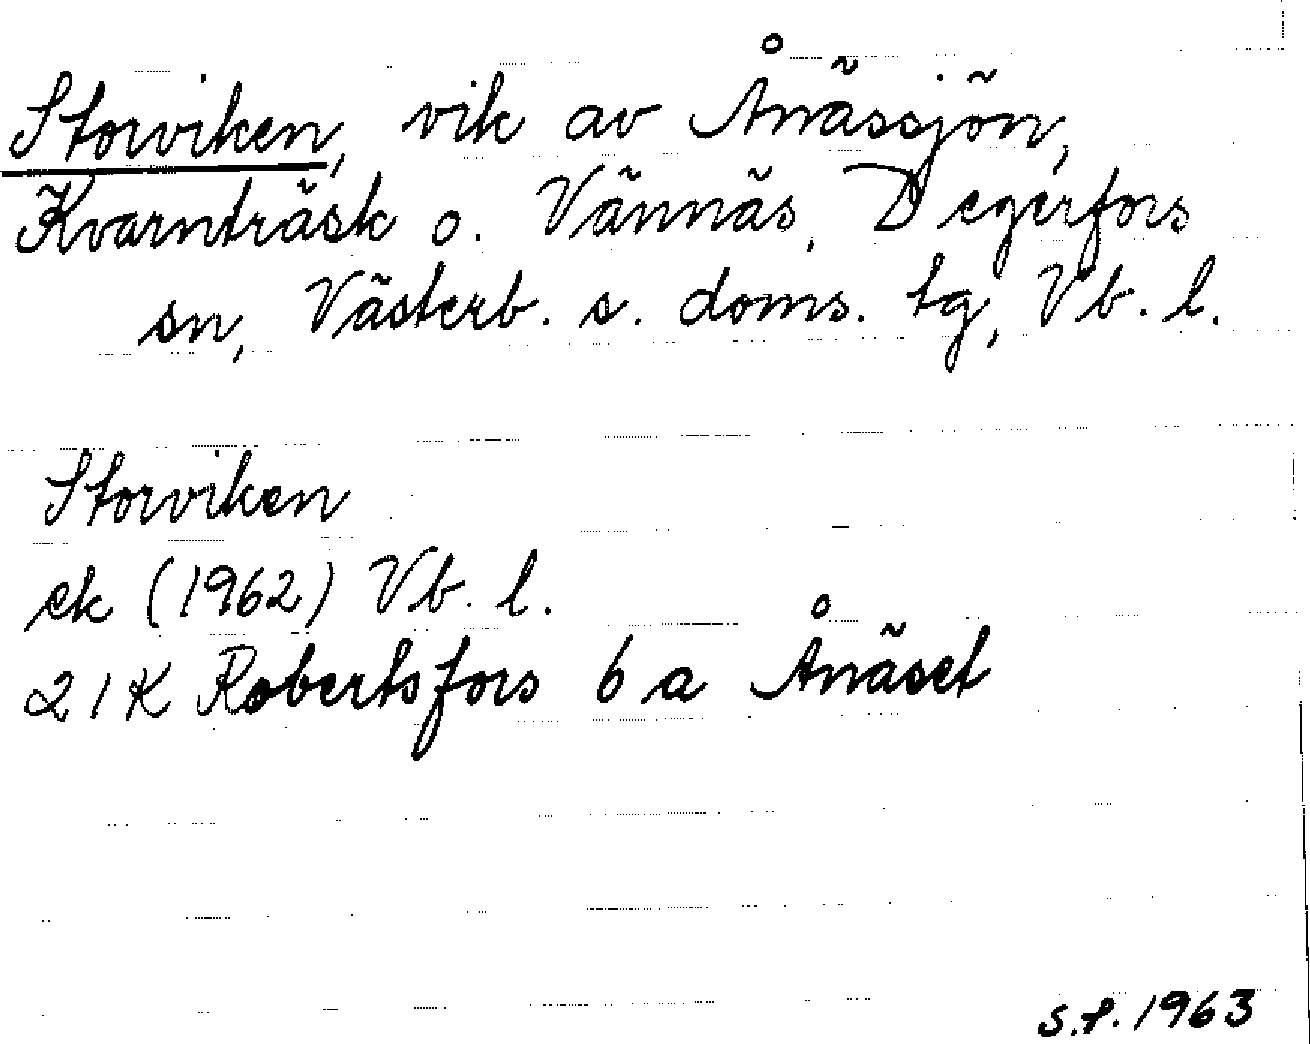 Storviken, vik av Ånässjön,
Kvarnträsk o. Vännäs, Degerfors
sn, Västerb. s. doms. tg, Vb. l.
Storviken
ek (1962) Vb. l.
21K Robertsfors 6a Ånäset
S.f. 1963